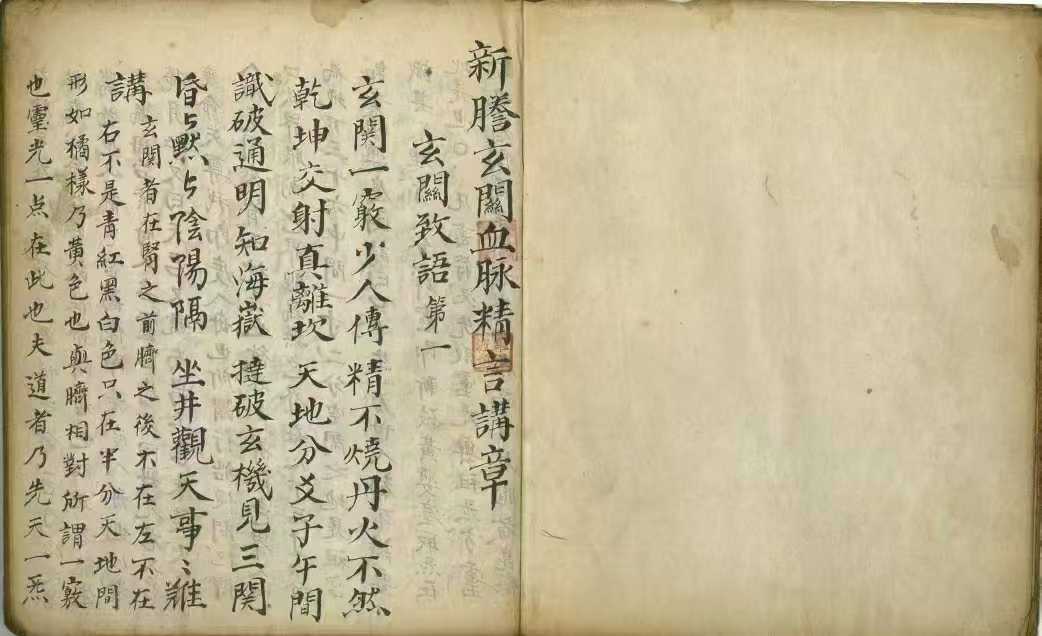 新謄玄關血脉精言講章
玄關致語第一
玄関一竅少人傳 精不燒丹火不然
乾坤交射真離坎 天地分爻子午間
識破通明知海嶽 撻破玄機見三関
昏々默々陰陽隔 坐井觀天事〻難
講 玄関者在腎之前臍之後不在左不在
右不是青紅黑白色只在半分天地間
形如橘樣乃黃色也與臍相對所謂一竅
也靈光一点在此也夫道者乃先天一炁